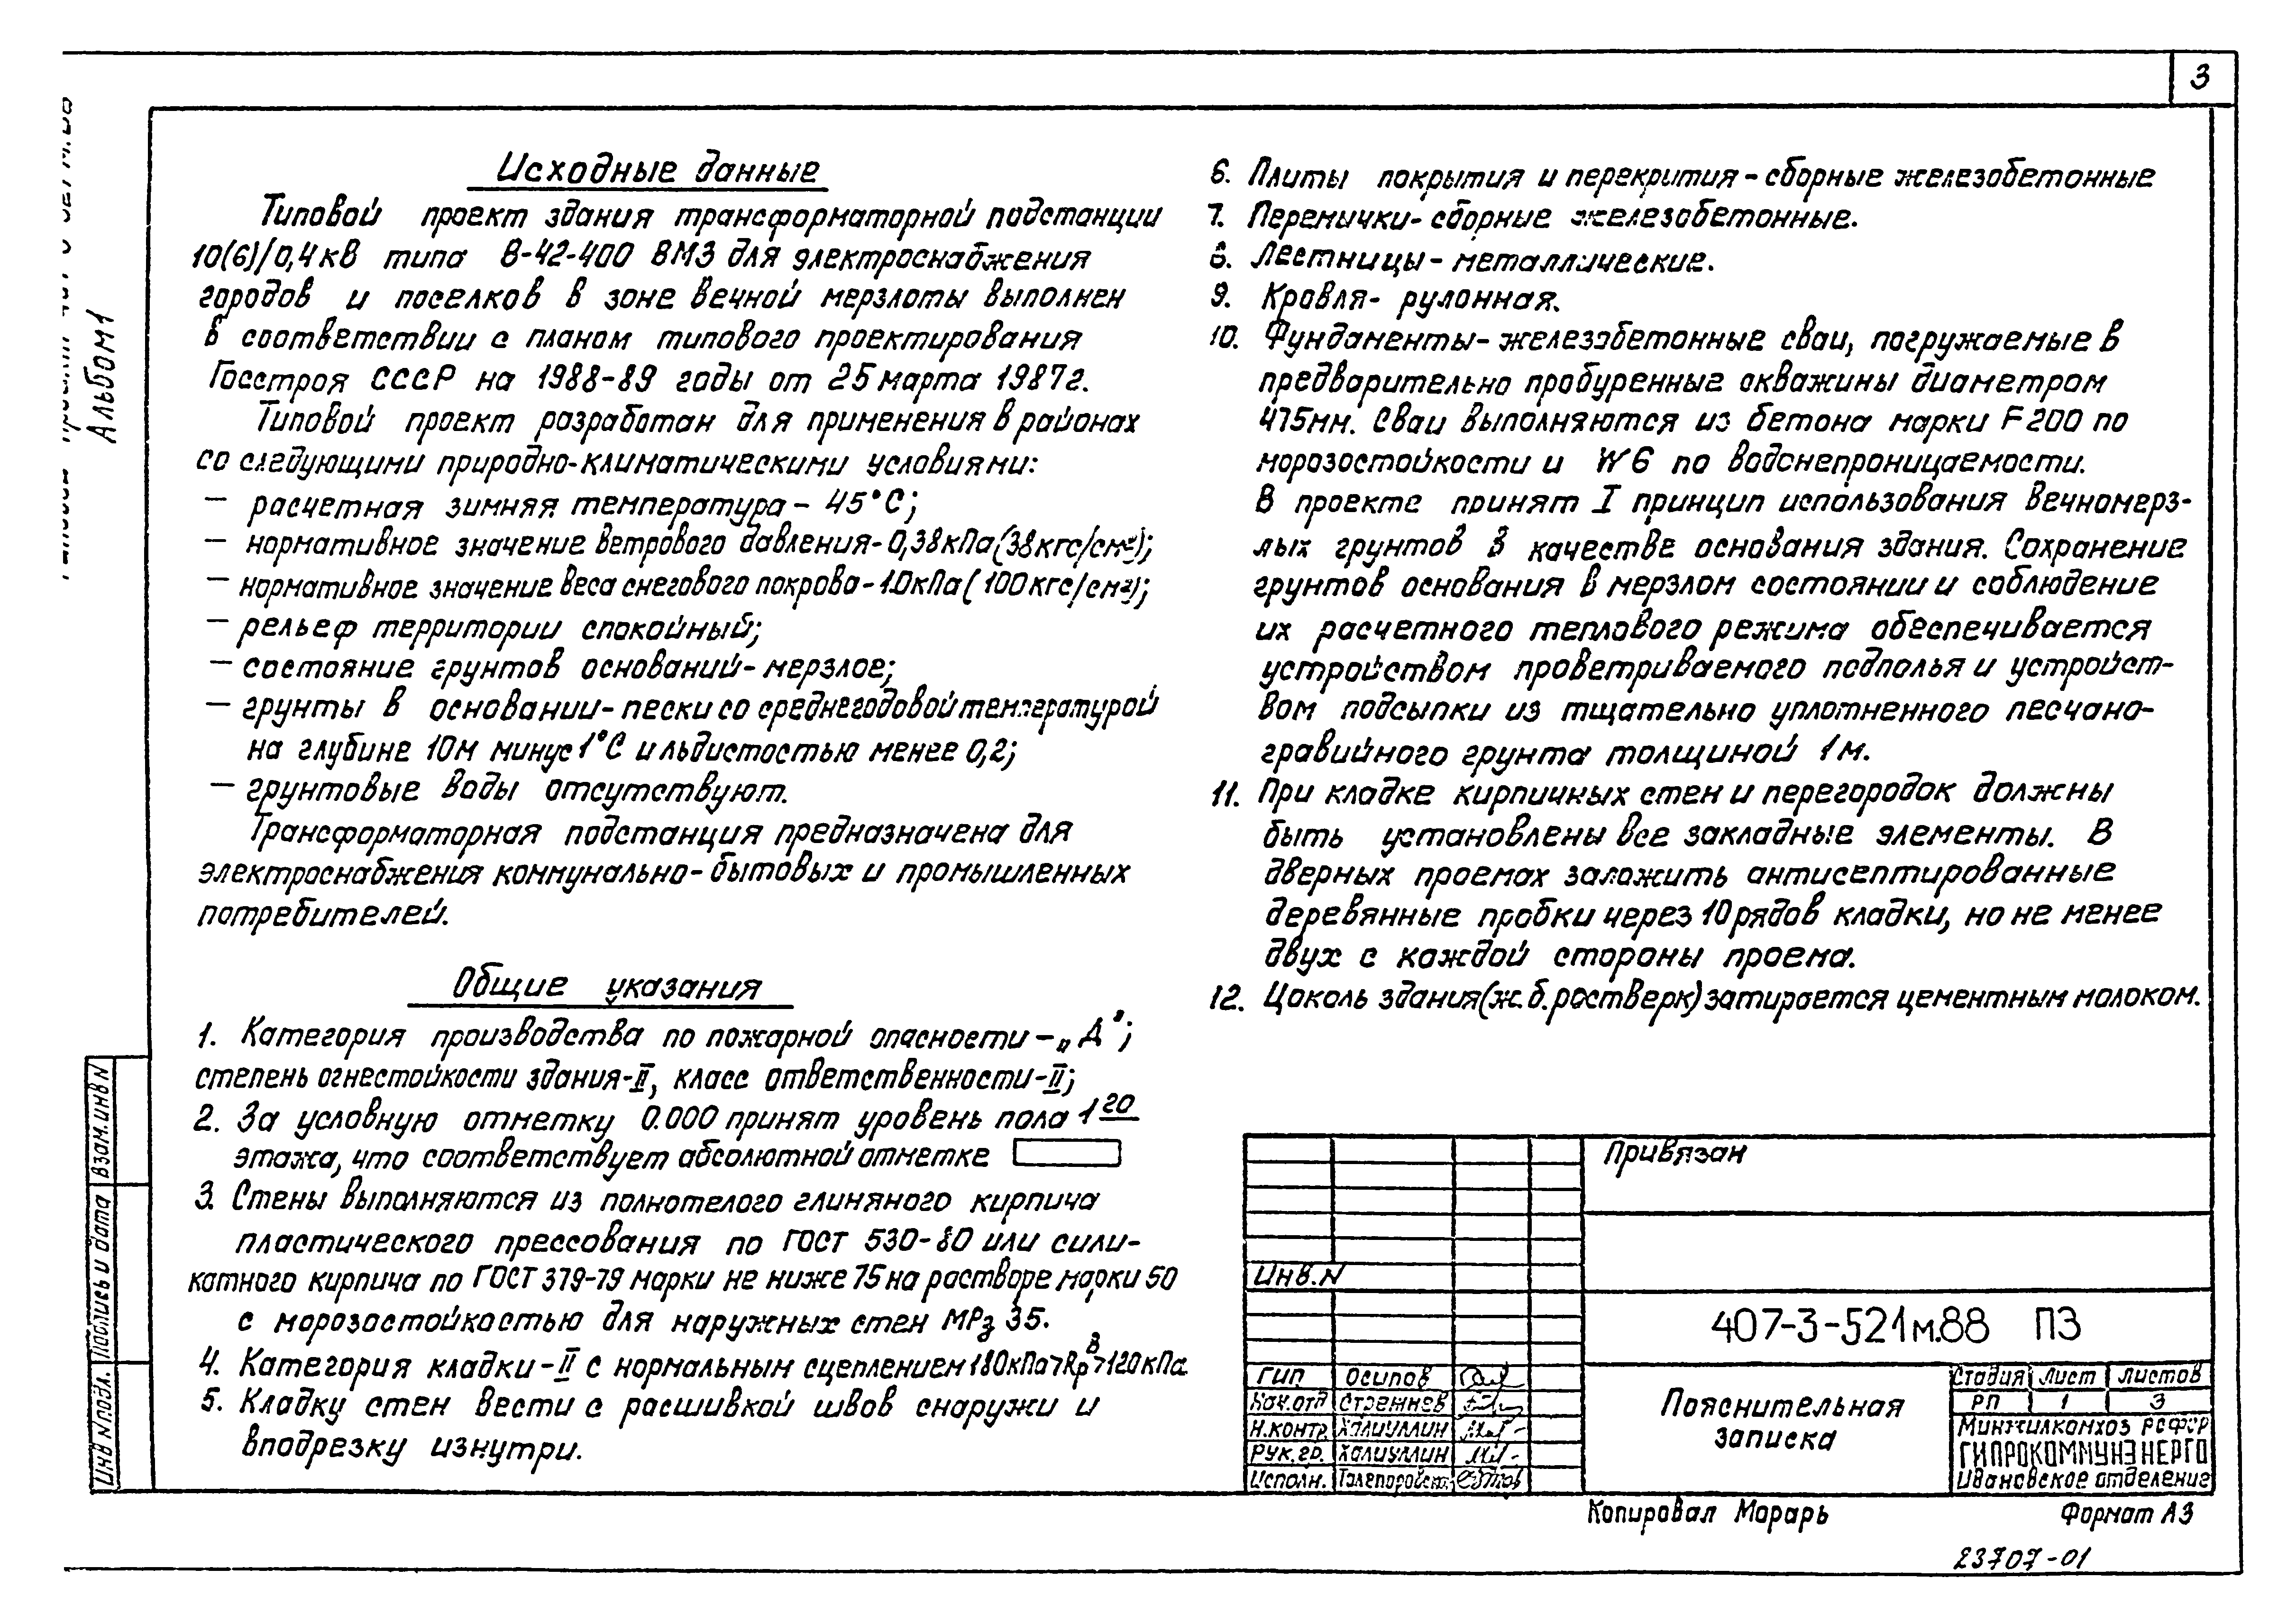 3
Альбом 1
Исходные данные
Типовой проект здания трансформаторной подстанции
10(6)/0,4кВ типа В-42-400 ВМЗ для электроснабжения
городов и поселков в зоне вечной мерзлоты выполнен
в соответствии с планом типового проектирования
Госстроя СССР на 1988-89 годы от 25 марта 1987г.
Типовой проект разработан для применения в районах
со следующими природно-климатическими условиями:
— расчетная зимняя температура - 45°С;
— нормативное значение ветрового давления - 0,38кПа (38кгс/см²);
— нормативное значение веса снегового покрова - 1.0кПа (100кгс/см²);
— рельеф территории спокойный;
— состояние грунтов оснований - мерзлое;
— грунты в основании - пески со среднегодовой температурой
на глубине 10м минус 1°С и льдистостью менее 0,2;
— грунтовые воды отсутствуют.
Трансформаторная подстанция предназначена для
электроснабжения коммунально-бытовых и промышленных
потребителей.
Общие указания
1. Категория производства по пожарной опасности — „Д";
степень огнестойкости здания-II, класс ответственности-II;
2. За условную отметку 0.000 принят уровень пола 1го
этажа, что соответствует абсолютной отметке
3. Стены выполняются из полнотелого глиняного кирпича
пластического прессования по ГОСТ 530-80 или сили-
катного кирпича по ГОСТ 379-79 марки не ниже 75 на растворе марки 50
с морозостойкостью для наружных стен МРз 35.
4. Категория кладки - II с нормальным сцеплением 180кПа>Rрв>120кПа
5. Кладку стен вести с расшивкой швов снаружи и
вподрезку изнутри.
6. Плиты покрытия и перекрития - сборные железобетонные
7. Перемычки - сборные железобетонные.
8. Лестницы - металлические.
9. Кровля - рулонная.
10. Фундаменты - железобетонные сваи, погружаемые в
предварительно пробуренные скважины диаметром
475мм. Сваи выполняются из бетона марки F200 по
морозостойкости и W6 по водонепроницаемости.
В проекте принят I принцип использования вечномерз-
лых грунтов в качестве основания здания. Сохранение
грунтов основания в мерзлом состоянии и соблюдение
их расчетного теплового режима обеспечивается
устройством проветриваемого подполья и устройст-
вом подсыпки из тщательно уплотненного песчано-
гравийного грунта толщиной 1м.
11. При кладке кирпичных стен и перегородок должны
быть установлены все закладные элементы. В
дверных проемах заложить антисептированные
деревянные пробки через 10 рядов кладки, но не менее
двух с каждой стороны проема.
12. Цоколь здания (ж.б. ростверк) затирается цементным молоком.
Взам. инв N
Подпись и дата
Инв N подл.
Привязан
Инв. N
407-3-521м.88 ПЗ
ГИП Осипов
Нач.отд Стремнев
Н.контр. Халиуллин
Рук.гр. Халиуллин
Исполн.
Пояснительная
записка
Стадия Лист Листов
РП 1 3
Минжилкомхоз РСФСР
ГИПРОКОММУНЭНЕРГО
Ивановское отделение
Копировал Морарь Формат А3
23707-01